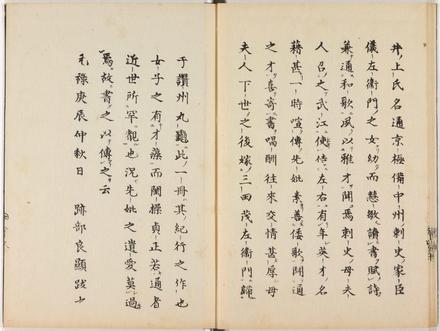 井上氏名通京極備中州刺史家臣
儀左衛門之女幼而慧敏讀書賦詩
兼通和歌夙以雅才聞焉刺史母夫
人召之武江使侍左右有年英才名
藉甚一時喧傳先妣素善倭歌聞通
之才喜寄書唱酬往來交情甚厚母
夫人下世之後嫁三田茂左衛門歸
于讃州丸龜此一冊其紀行之作也
女子之有才藻而閫操貞正若通者
近世所罕覯也況先妣之遺愛莫過
焉故書之以傳之云
元祿庚辰仲秋日　跡部良顯跋